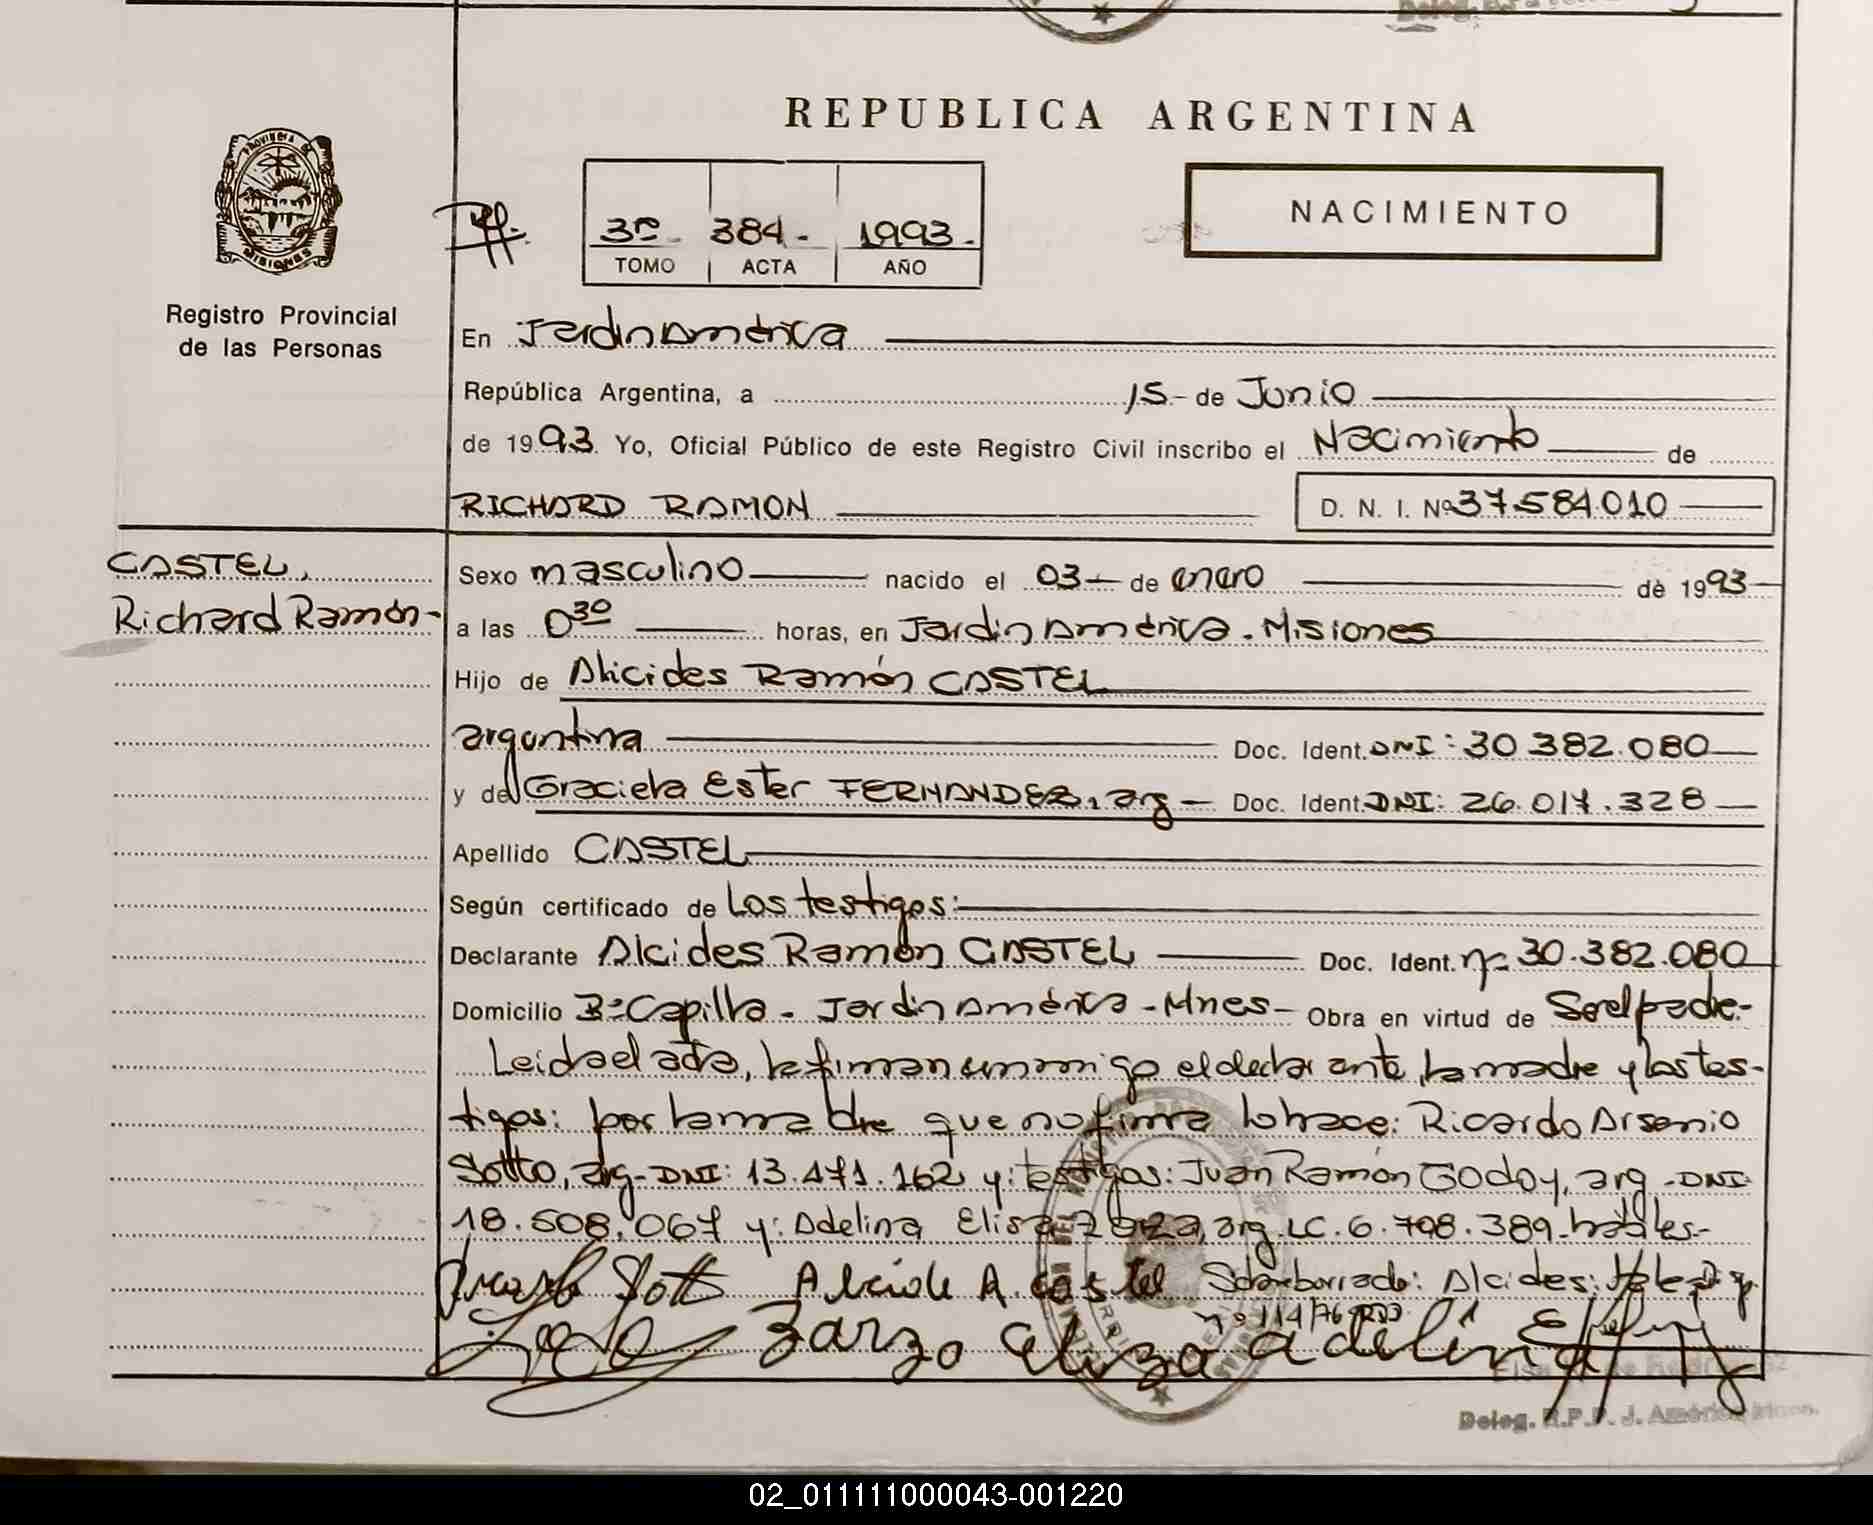 REPUBLICA ARGENTINA
PROVINCIA DE
MISIONES
3º- 384- 1993-
TOMO ACTA AÑO
NACIMIENTO
Registro Provincial
de las Personas
En Jardin América
República Argentina, a 15- de Junio
de 1993 Yo, Oficial Público de este Registro Civil inscribo el Nacimiento de
RICHARD RAMON D. N. I. Nº 37.584.010
CASTEL,
Richard Ramón-
Sexo masculino nacido el 03 de enero de 1993
a las 0 30 horas, en Jardin América. Misiones
Hijo de Alicides Ramón CASTEL
argentina Doc. Ident. DNI: 30 382.080
y de Graciela Ester FERNANDEZ, arg - Doc. Ident. DNI: 26.017.328
Apellido CASTEL
Según certificado de Los testigos:
Declarante Alcides Ramón CASTEL Doc. Ident. nº 30.382.080
Domicilio Bº Capilla - Jardin América - Mnes - Obra en virtud de Ser el padre-
Leida el acta, la firman conmigo el declarante, la madre y los tes-
tigos: por la madre que no firma lo hace: Ricardo Arsenio
Sotto, arg - DNI: 13.471.162 y: testigos: Juan Ramón Godoy, arg - DNI
18.508.067 y: Adelina Elisa arg. LC. 6.708.389 habiles-
Sotto Alcide A. castel Sobreborrado: Alcides: Vale
nº 114/76
Zarzo eliza adelina
Deleg. R.P.P. J. América
02_011111000043-001220